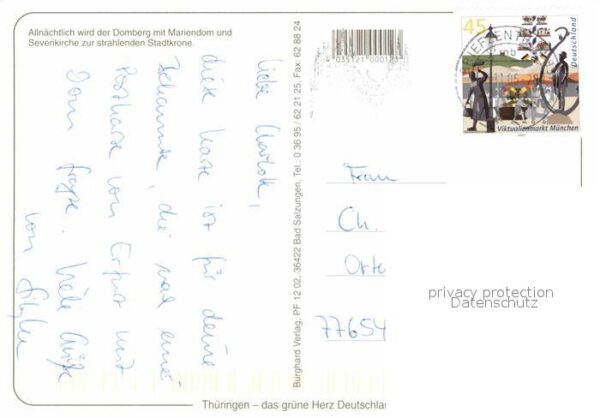 Allnächtlich wird der Domberg mit Mariendom und
Severikirche zur strahlenden Stadtkrone.
Liebe
diese Karte ist für deine
Bekannte, die mal eine
Postkarte vom Erfurter
Dom fragte. Viele Grüße
von
Burghard Verlag, PF 12 02, 36422 Bad Salzungen, Tel.: 0 36 95 / 62 21 25, Fax: 62 88 24
4035121000123
45
Deutschland
Viktualienmarkt München
Frau
Ch.
Orte
77654
privacy protection
Datenschutz
Thüringen – das grüne Herz Deutschla